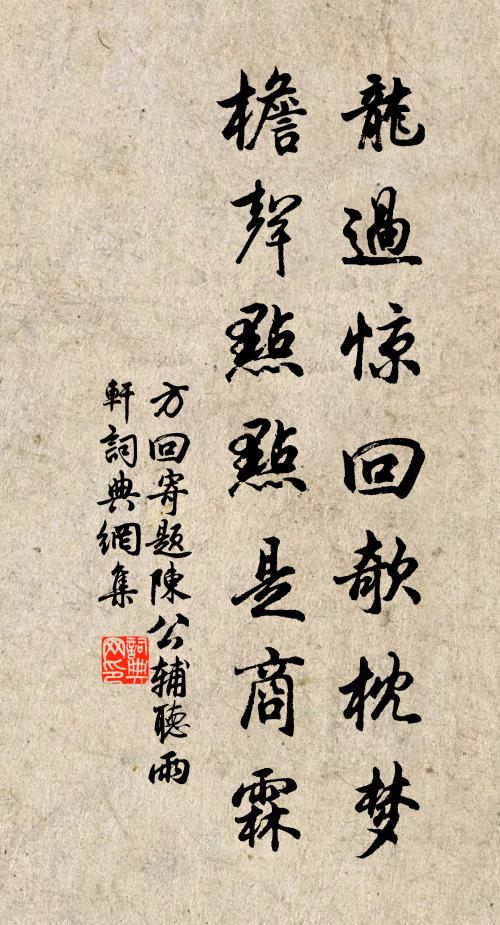 龍過惊回欹枕梦
檐聲點點是商霖
方回寄题陳公辅聽雨
軒詞典網集
詞典网印